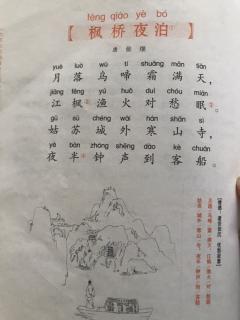 fēng qiáo yè bó
【枫桥夜泊】
唐 张继
yuè luò wū tí shuāng mǎn tiān
月落乌啼霜满天，
jiāng fēng yú huǒ duì chóu mián
江枫渔火对愁眠。
gū sū chéng wài hán shān sì
姑苏城外寒山寺，
yè bàn zhōng shēng dào kè chuán
夜半钟声到客船。